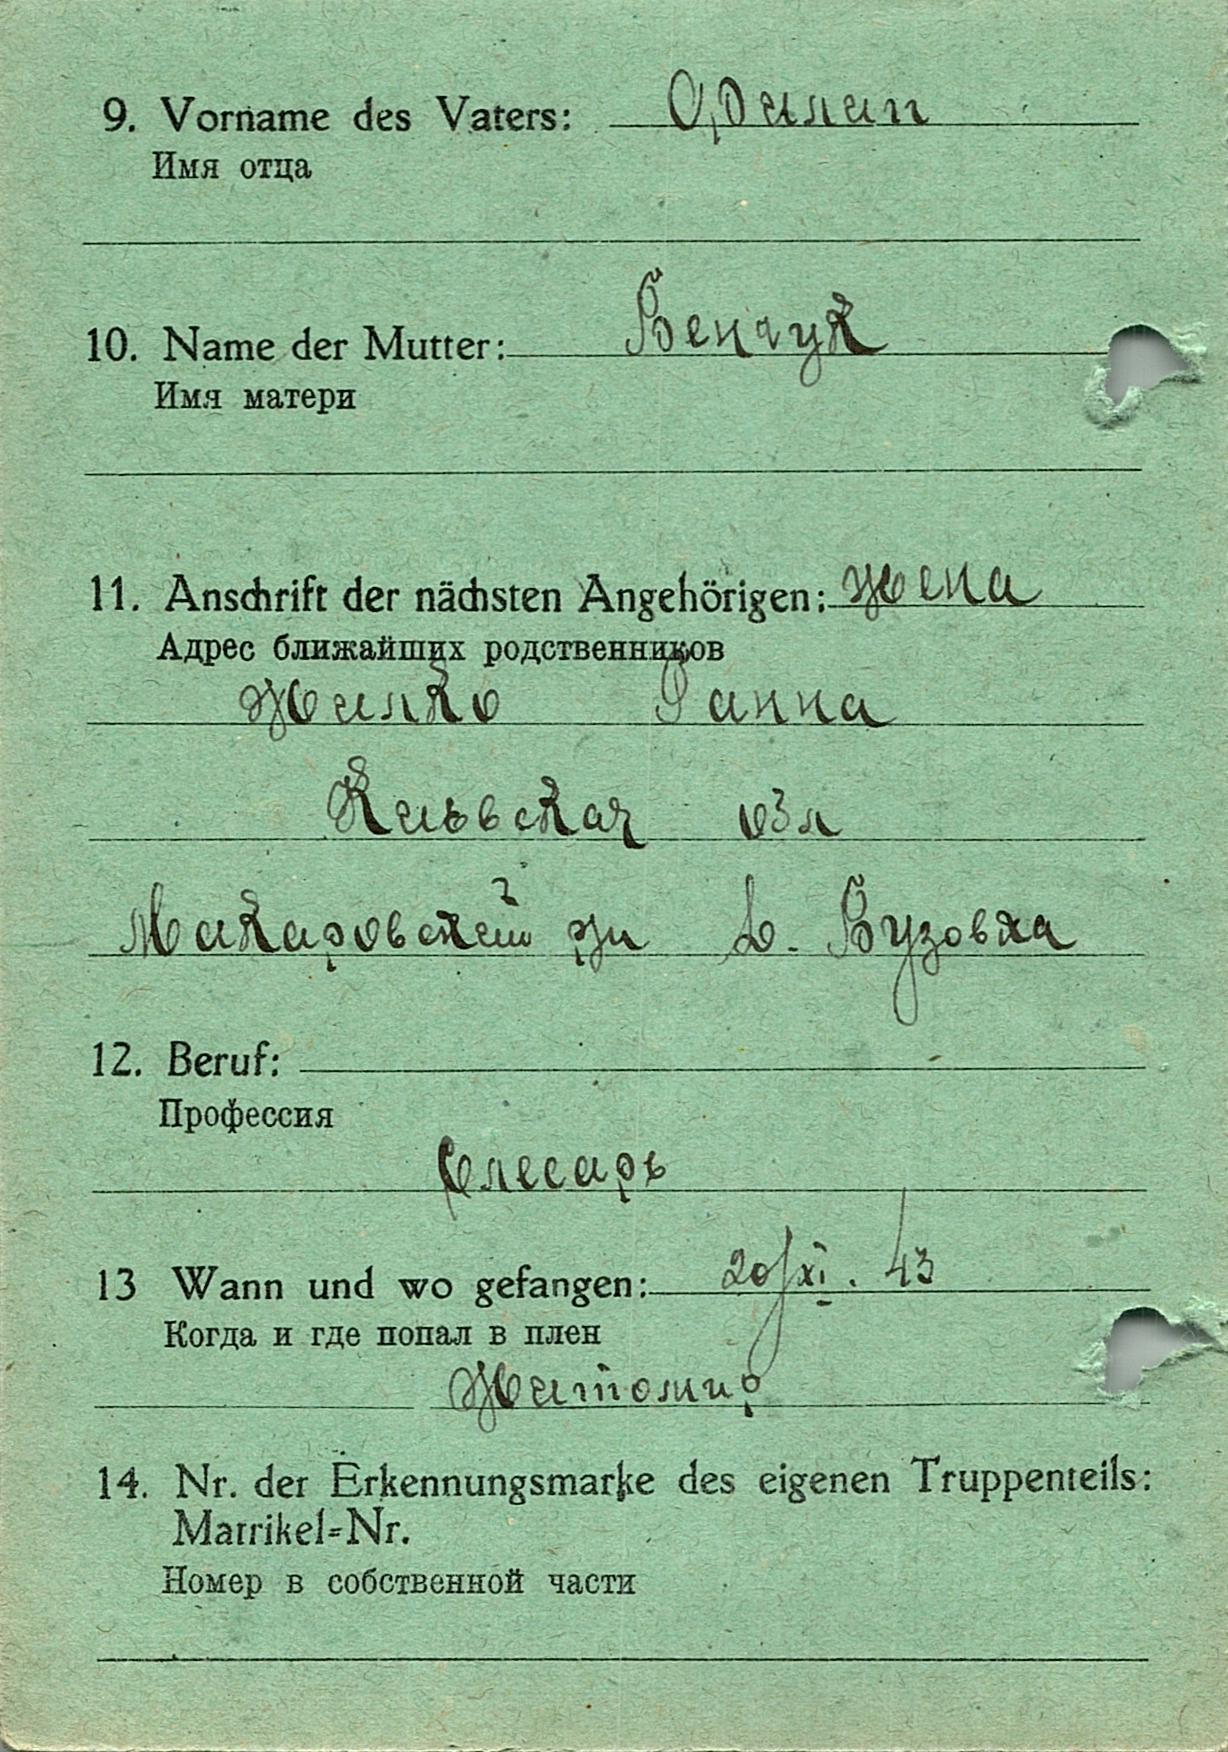 9. Vorname des Vaters:
Имя отца
10. Name der Mutter: Бенчук
Имя матери
11. Anschrift der nächsten Angehörigen: жена
Адрес ближайших родственников
Жилко Ганна
Киевская обл
Макаровский рн д. Бузовка
12. Beruf:
Профессия
Слесарь
13 Wann und wo gefangen: 20/XI. 43
Когда и где попал в плен
Житомир
14. Nr. der Erkennungsmarke des eigenen Truppenteils:
Matrikel=Nr.
Номер в собственной части